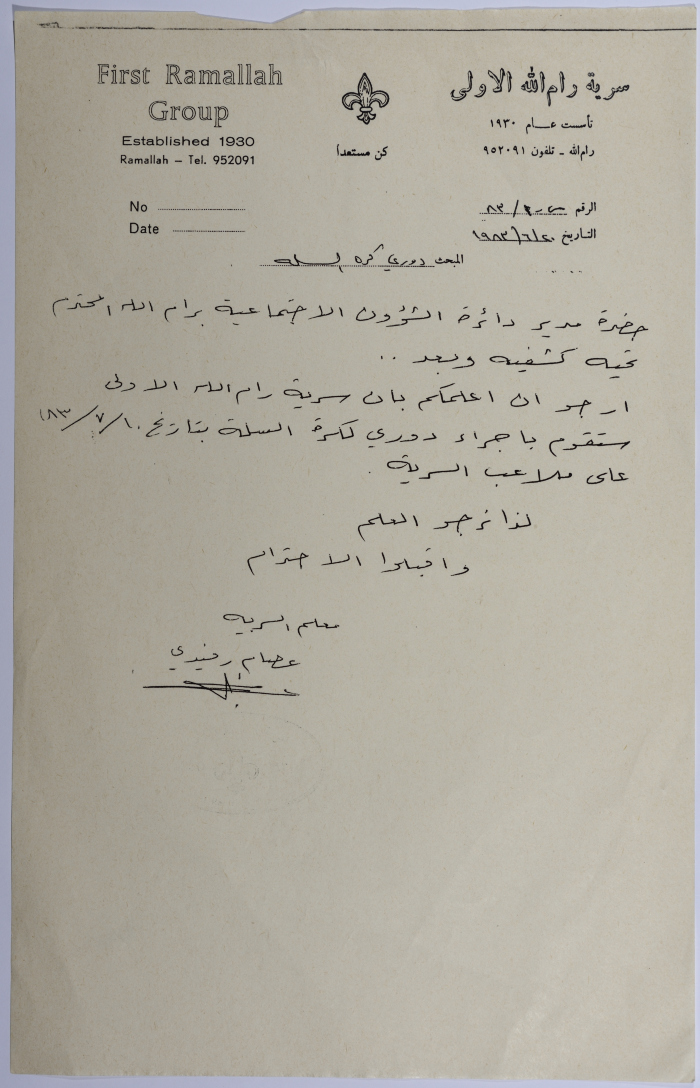 First Ramallah
Group
Established 1930
Ramallah – Tel. 952091
كن مستعدا
سرية رام الله الاولى
تأسست عــام ١٩٣٠
رام الله ـ تلفون ٩٥٢٠٩١
No
Date
الرقم /٨٣
التاريخ ٢٠/٦/١٩٨٣
المبحث دوري كرة السله
حضرة مدير دائرة الشؤون الاجتماعية برام الله المحترم
تحيه كشفيه وبعد ..
ارجو ان اعلمكم بان سرية رام الله الاولى
ستقوم باجراء دوري لكرة السلة بتاريخ ١٠/٧/٨٣
على ملاعب السرية .
لذا نرجو العلم
واقبلوا الاحترام
معلم السريه
عصام رفيدي